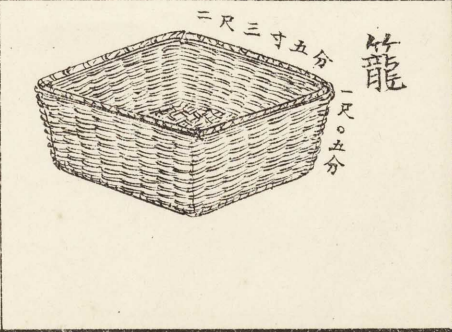 籠
二尺三寸五分
一尺〇五分